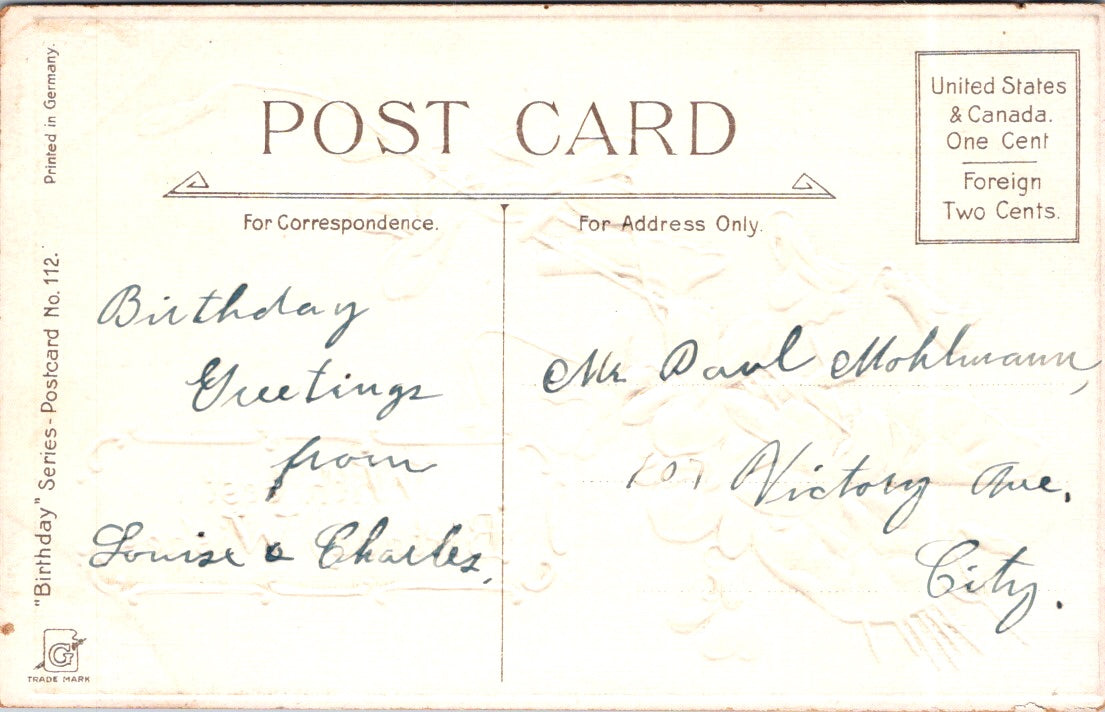 POST CARD
United States
& Canada.
One Cent
Foreign
Two Cents.
For Correspondence.
For Address Only.
Birthday
Greetings
from
Louise & Charles,
Mr. Paul Mohlmann,
107 Victory Ave.
City.
Printed in Germany.
"Birthday" Series - Postcard No. 112.
G
TRADE MARK